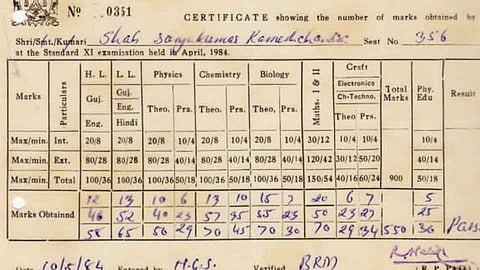 Nº 0351
CERTIFICATE showing the number of marks obtained by
Shri/Smt./Kumari Shah Sanjaykumar Rameshchandra Seat No 356
at the Standard XI examination held in April, 1984.
Marks Particulars H. L. L L. Physics Chemistry Biology Maths. I & II Craft Total Marks Phy. Edu Result
Guj. Eng. Guj. Eng. Hindi Theo. Pra. Theo. Pra. Theo. Pra. Electronics Ch-Techno. Theo Pra.
Max/min. Int. 20/8 20/8 20/8 10/4 20/8 10/4 20/8 10/4 30/12 10/4 10/4 10/4
Max/min. Ext. 80/28 80/28 80/28 40/14 80/28 40/14 80/28 40/14 120/42 30/12 50/20 40/14
Max/min. Total 100/36 100/36 100/36 50/18 100/36 50/18 100/36 50/18 150/54 40/16 60/24 900 50/18
12 13 10 6 13 10 15 7 20 6 7 5
Marks Obtainnd 46 52 40 23 57 35 55 23 50 23 27 25
58 65 50 29 70 45 70 30 70 29 34 550 30 Pass
Date 10/5/84 Entered by H.G.S. Verified BRM